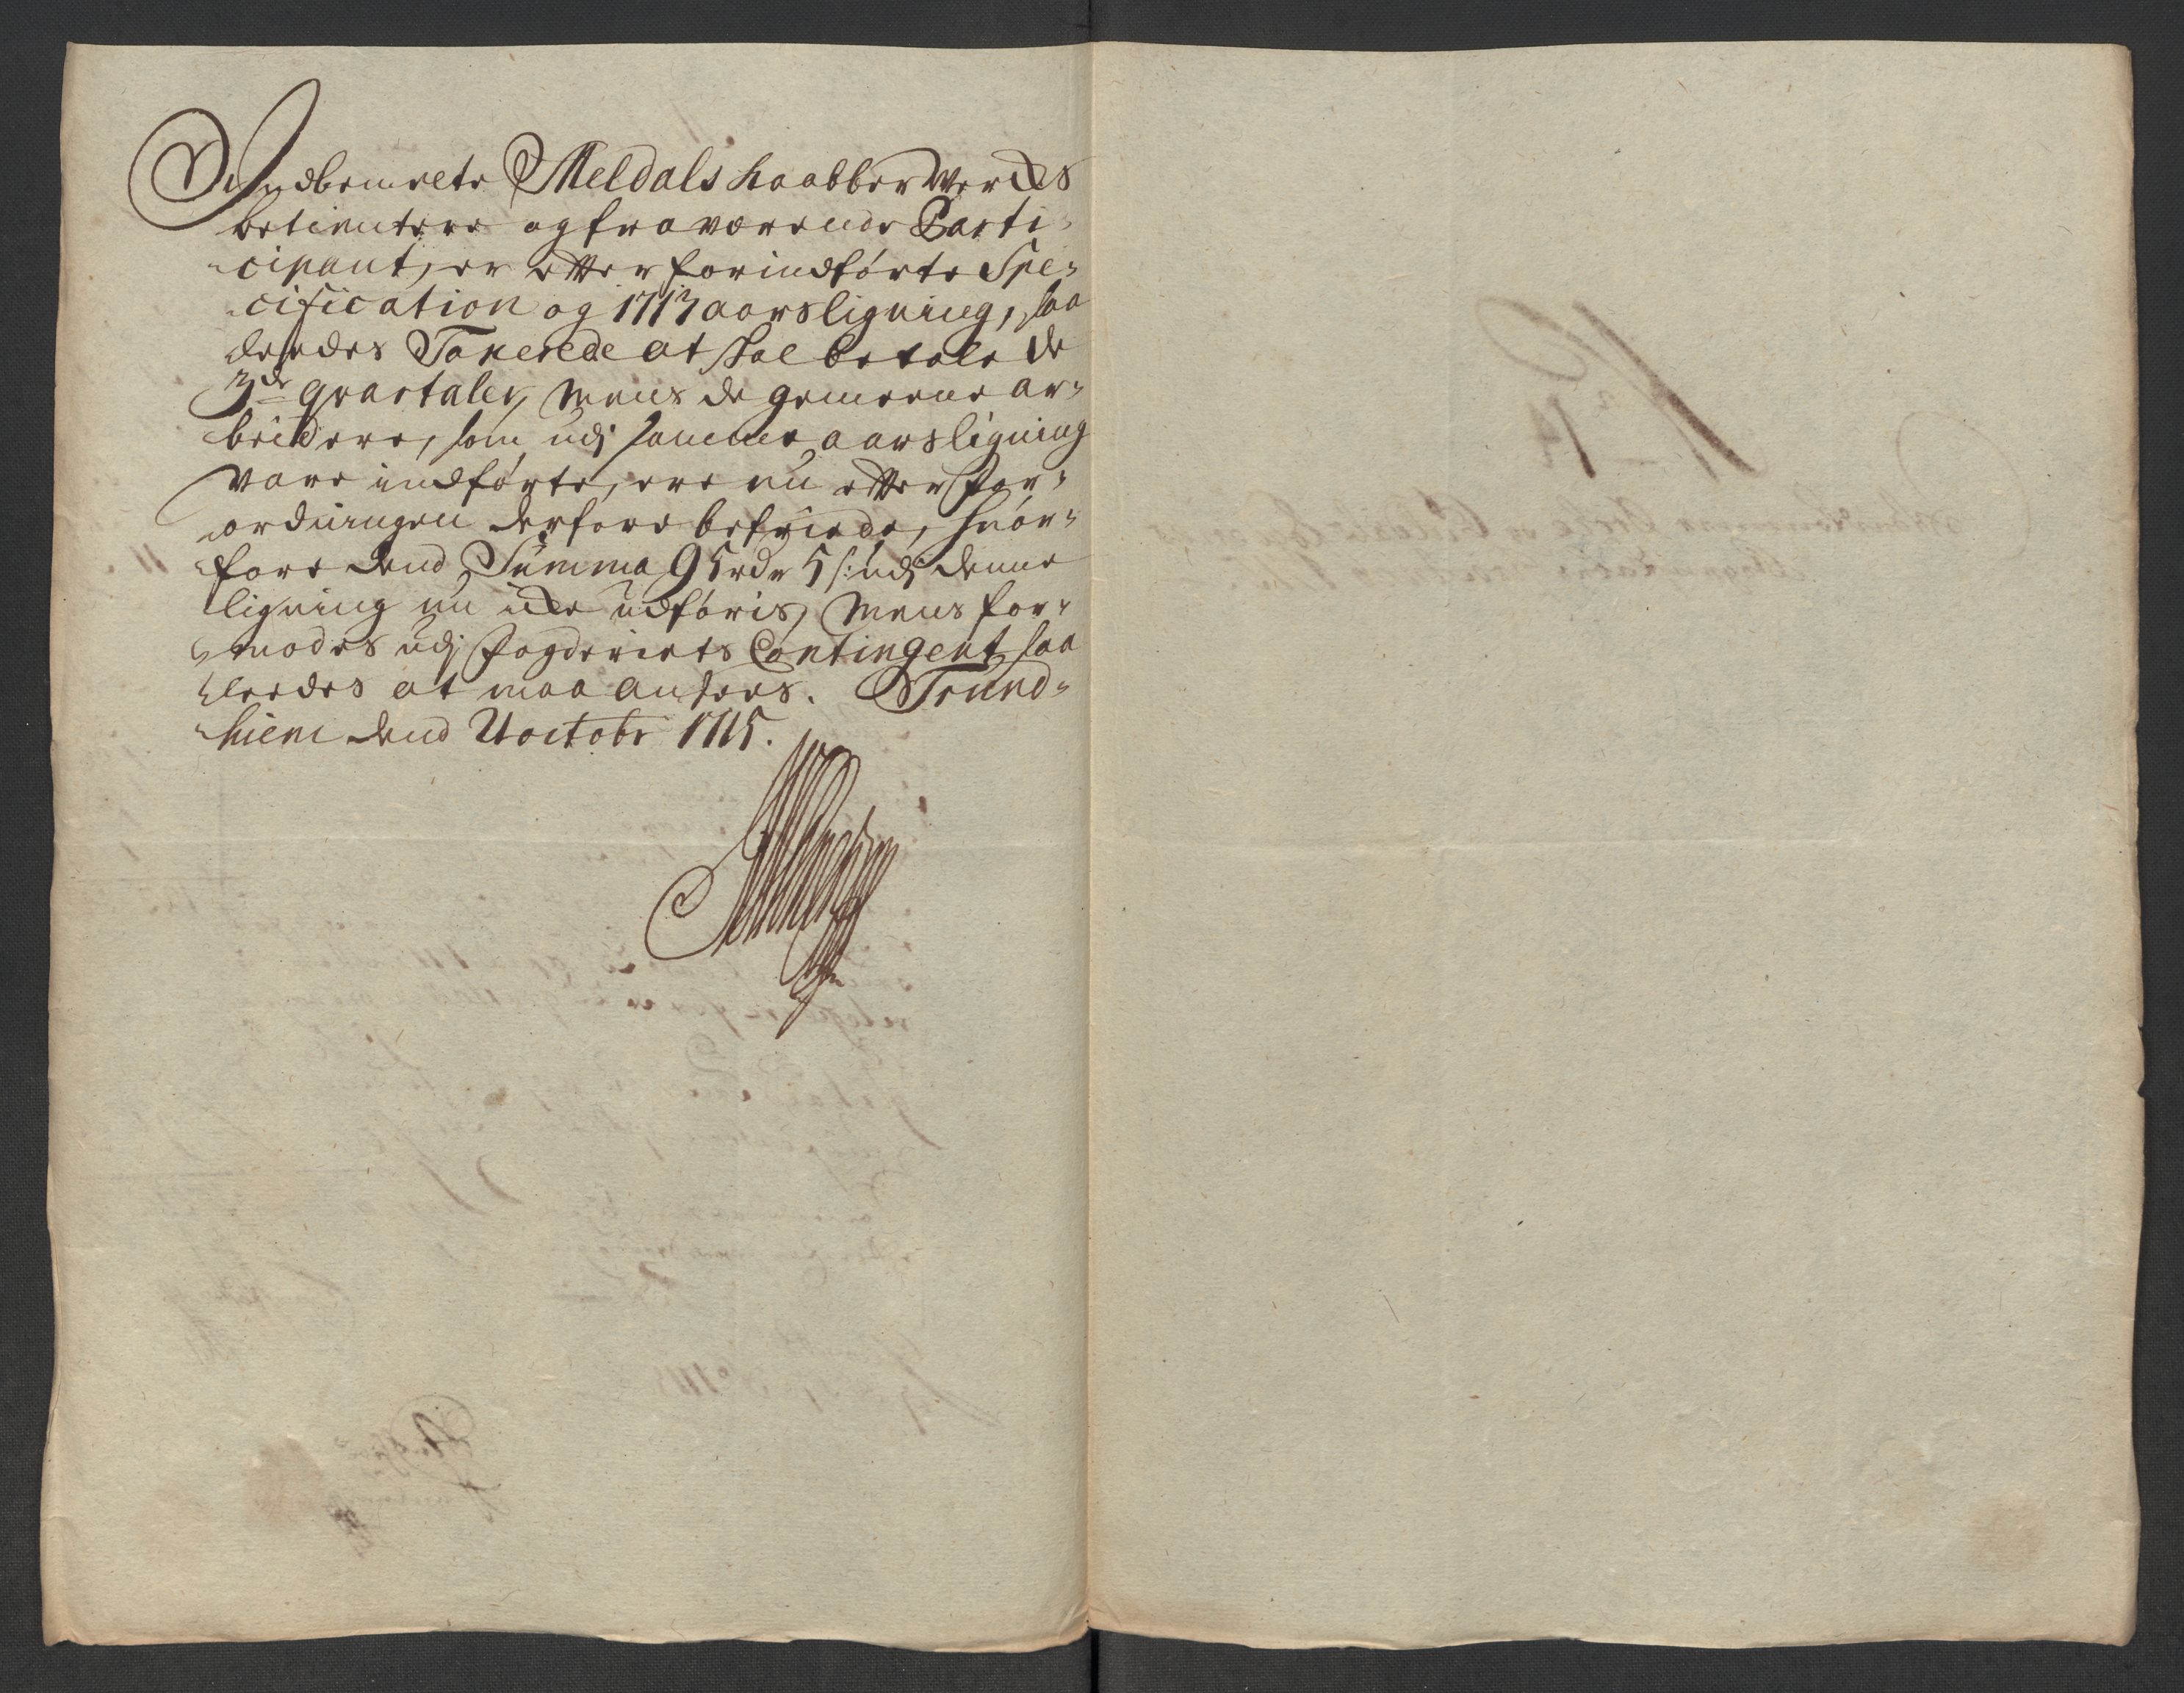 Indbemelte Meldals Kaabber Werckes
betientere og fraværende Parti-
cipant, er efter forindførte Spe-
cification og 1713 aars ligning, saa
ledes Taxerede at skal betale de
3de qvartaler, mens de gemeene ar-
beidere, som udj samme aars ligning
vare indførte, ere nu efter For-
ordningen derfore befriede, hvor-
fore dend Summa 95 rdr 5 s: udj denne
ligning nu icke udføris, mens for-
modes udj Fogderiets Contingent saa
leedes at maa ansees. Trund-
hiem dend octobr 1715.
No 14